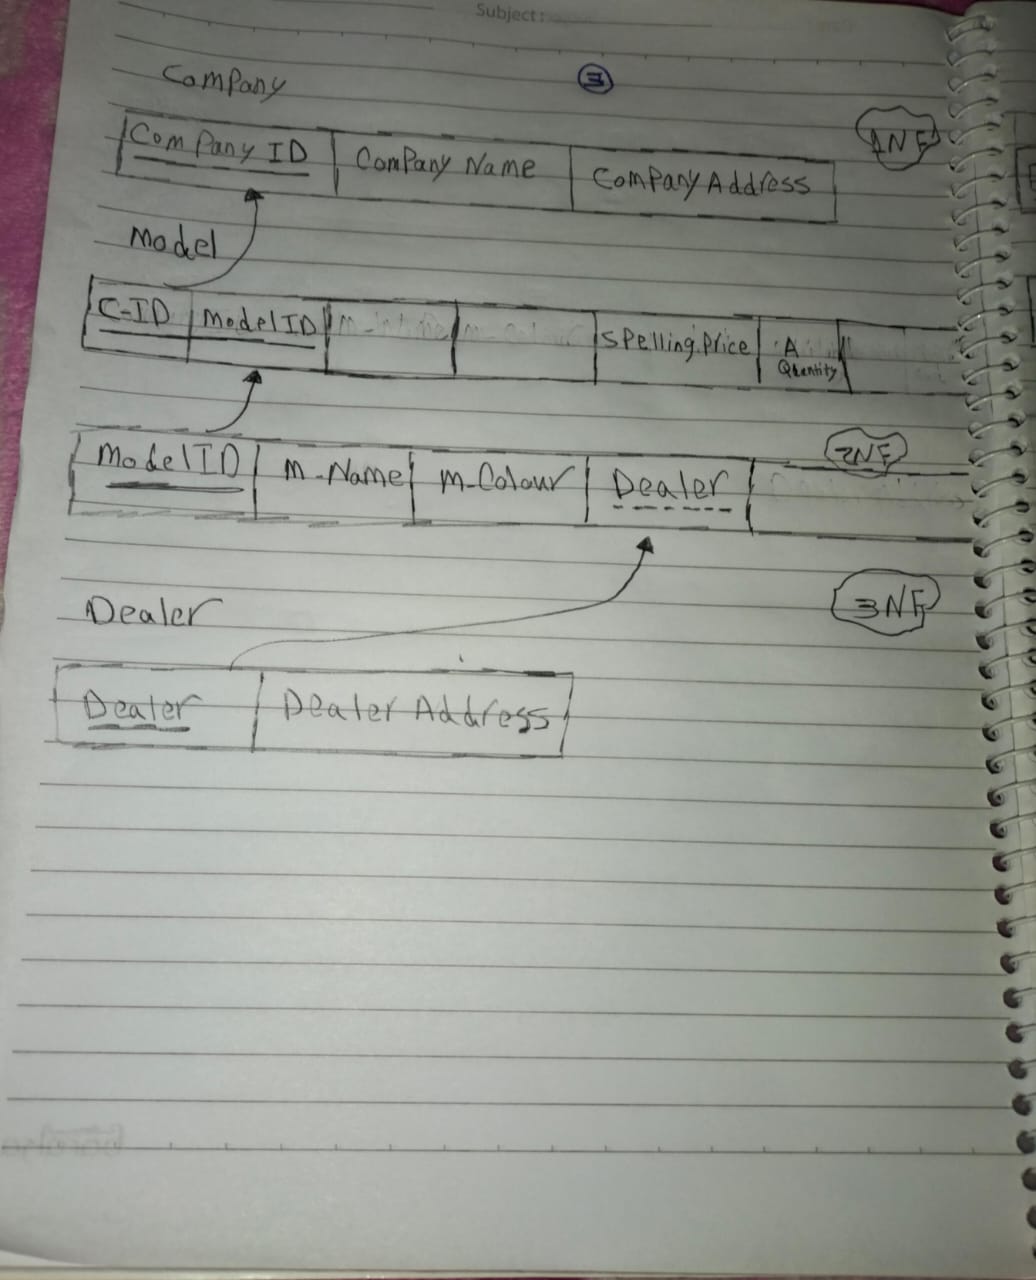 Subject:
Company
3
1NF
Company ID Company Name Company Address
Model
C-ID Model ID Spelling.Price A Quentity
2NF
Model ID M-Name M-Colour Dealer
3NF
Dealer
Dealer Dealer Address